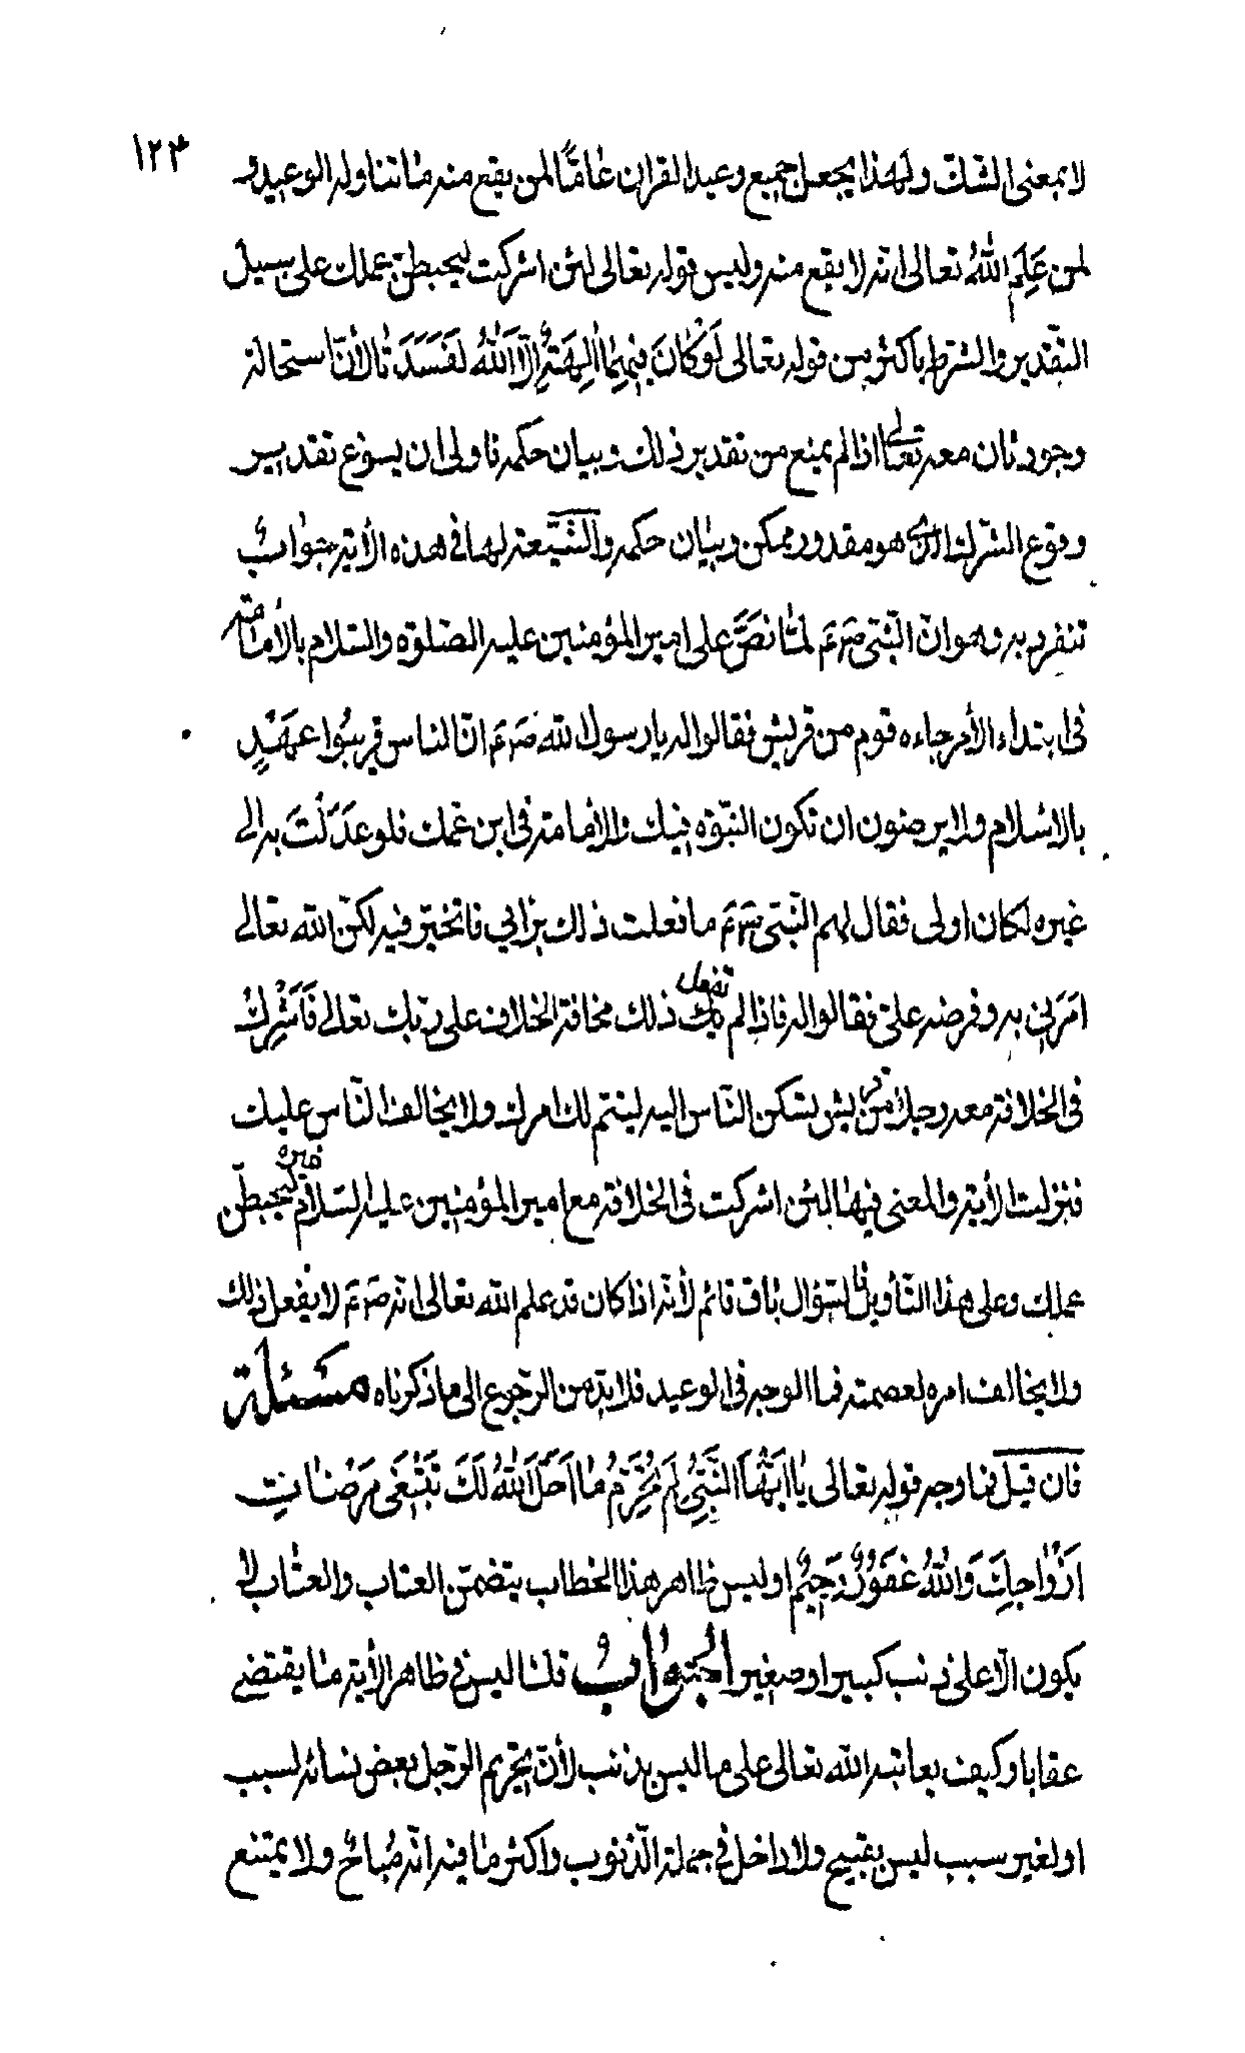 ١٢٣
لا بمعنى الشك ولهذا يجعل جميع وعيد القران عامّا لمن يقع منه ما تناوله الوعيد و
لمن عَلِمَ اللهُ تعالى انه لا يقع منه وليس قوله تعالى لئن اشركت ليحبطن عملك على سبيل
التقدير والشرط باكثر من قوله تعالى لَوْ كانَ فِيهِما الِهَةٌ اِلّا اَللهُ لَفَسَدَتا لأن استحالة
وجود ثان معه تعالى اذا لم يمنع من تقدير ذلك وبيان حكمه فاولى ان يسوغ تقدير
وقوع الشرك الذى هو مقدور ممكن وبيان حكمه والشّيعة لها في هذه الأية جوابٌ
تنفرد به وهو انّ النّبىّ صَ‍ ‍عَ لمّا نَصَّ على امير المؤمنين عليه الصّلوة والسّلام بالأمامة
فى ابتداء الأمر جاءه قوم من قريش فقالوا له يا رسول الله صَ‍ ‍عَ انّ الناس قريبُوا عهَدٍ
بالاسلام ولا يرضون ان تكون النبوّة فيك والأمامة فى ابن عمّك فلو عدَلْتَ به الى
غيره لكان اولى فقال لهم النّبىّ صَ‍ ‍عَ ما فعلت ذلك برايي فاتخيّر فيه لكنّ الله تعالى
امَرَني به وفرضه علىّ فقالوا له فاذا لم تفعل ذلك مخافة الخلاف على ربّك تعالى فَاَشْرِكْ
فى الخلافة معه رجلا من قريش يسكن النّاس اليه ليتم لك امرك ولا يخالف النّاس عليك
فنزلت الأية والمعنى فيها لئن اشركت فى الخلافة مع امير المؤمنين عليه السّلام غيره ليحبطنّ
عملك وعلى هذا التّأويل السّؤال باق قائم لأنّه اذا كان قد علم الله تعالى انّه صَ‍ ‍عَ لا يفعل ذلك
ولا يخالف امره لعصمته فما الوجه فى الوعيد فلا بدّ من الرّجوع الى ما ذكرناه مسئلة
فان قيل فما وجه قوله تعالى يا اَيُّهَا اَلنَّبِيُّ لِمَ تُحَرِّمُ ما اَحَلَّ اَللهُ لَكَ تَبْتَغِي مَرْضاتِ
اَزْواجِكَ وَاللهُ غَفُورٌ رَحِيمٌ او ليس ظاهر هذا الخطاب يتضمّن العتاب والعتاب لا
يكون الّا على ذنب كبير او صغير الجوابُ قلنا ليس في ظاهر الأية ما يقتضى
عقابا وكيف يعاتبه الله تعالى على ما ليس بذنب لأنّ تحريم الرّجل بعض نسائه لسبب
او لغير سبب ليس بقبيح ولا داخل فى جملة الذّنوب واكثر ما فيه انّه مُباحٌ ولا يمتنع